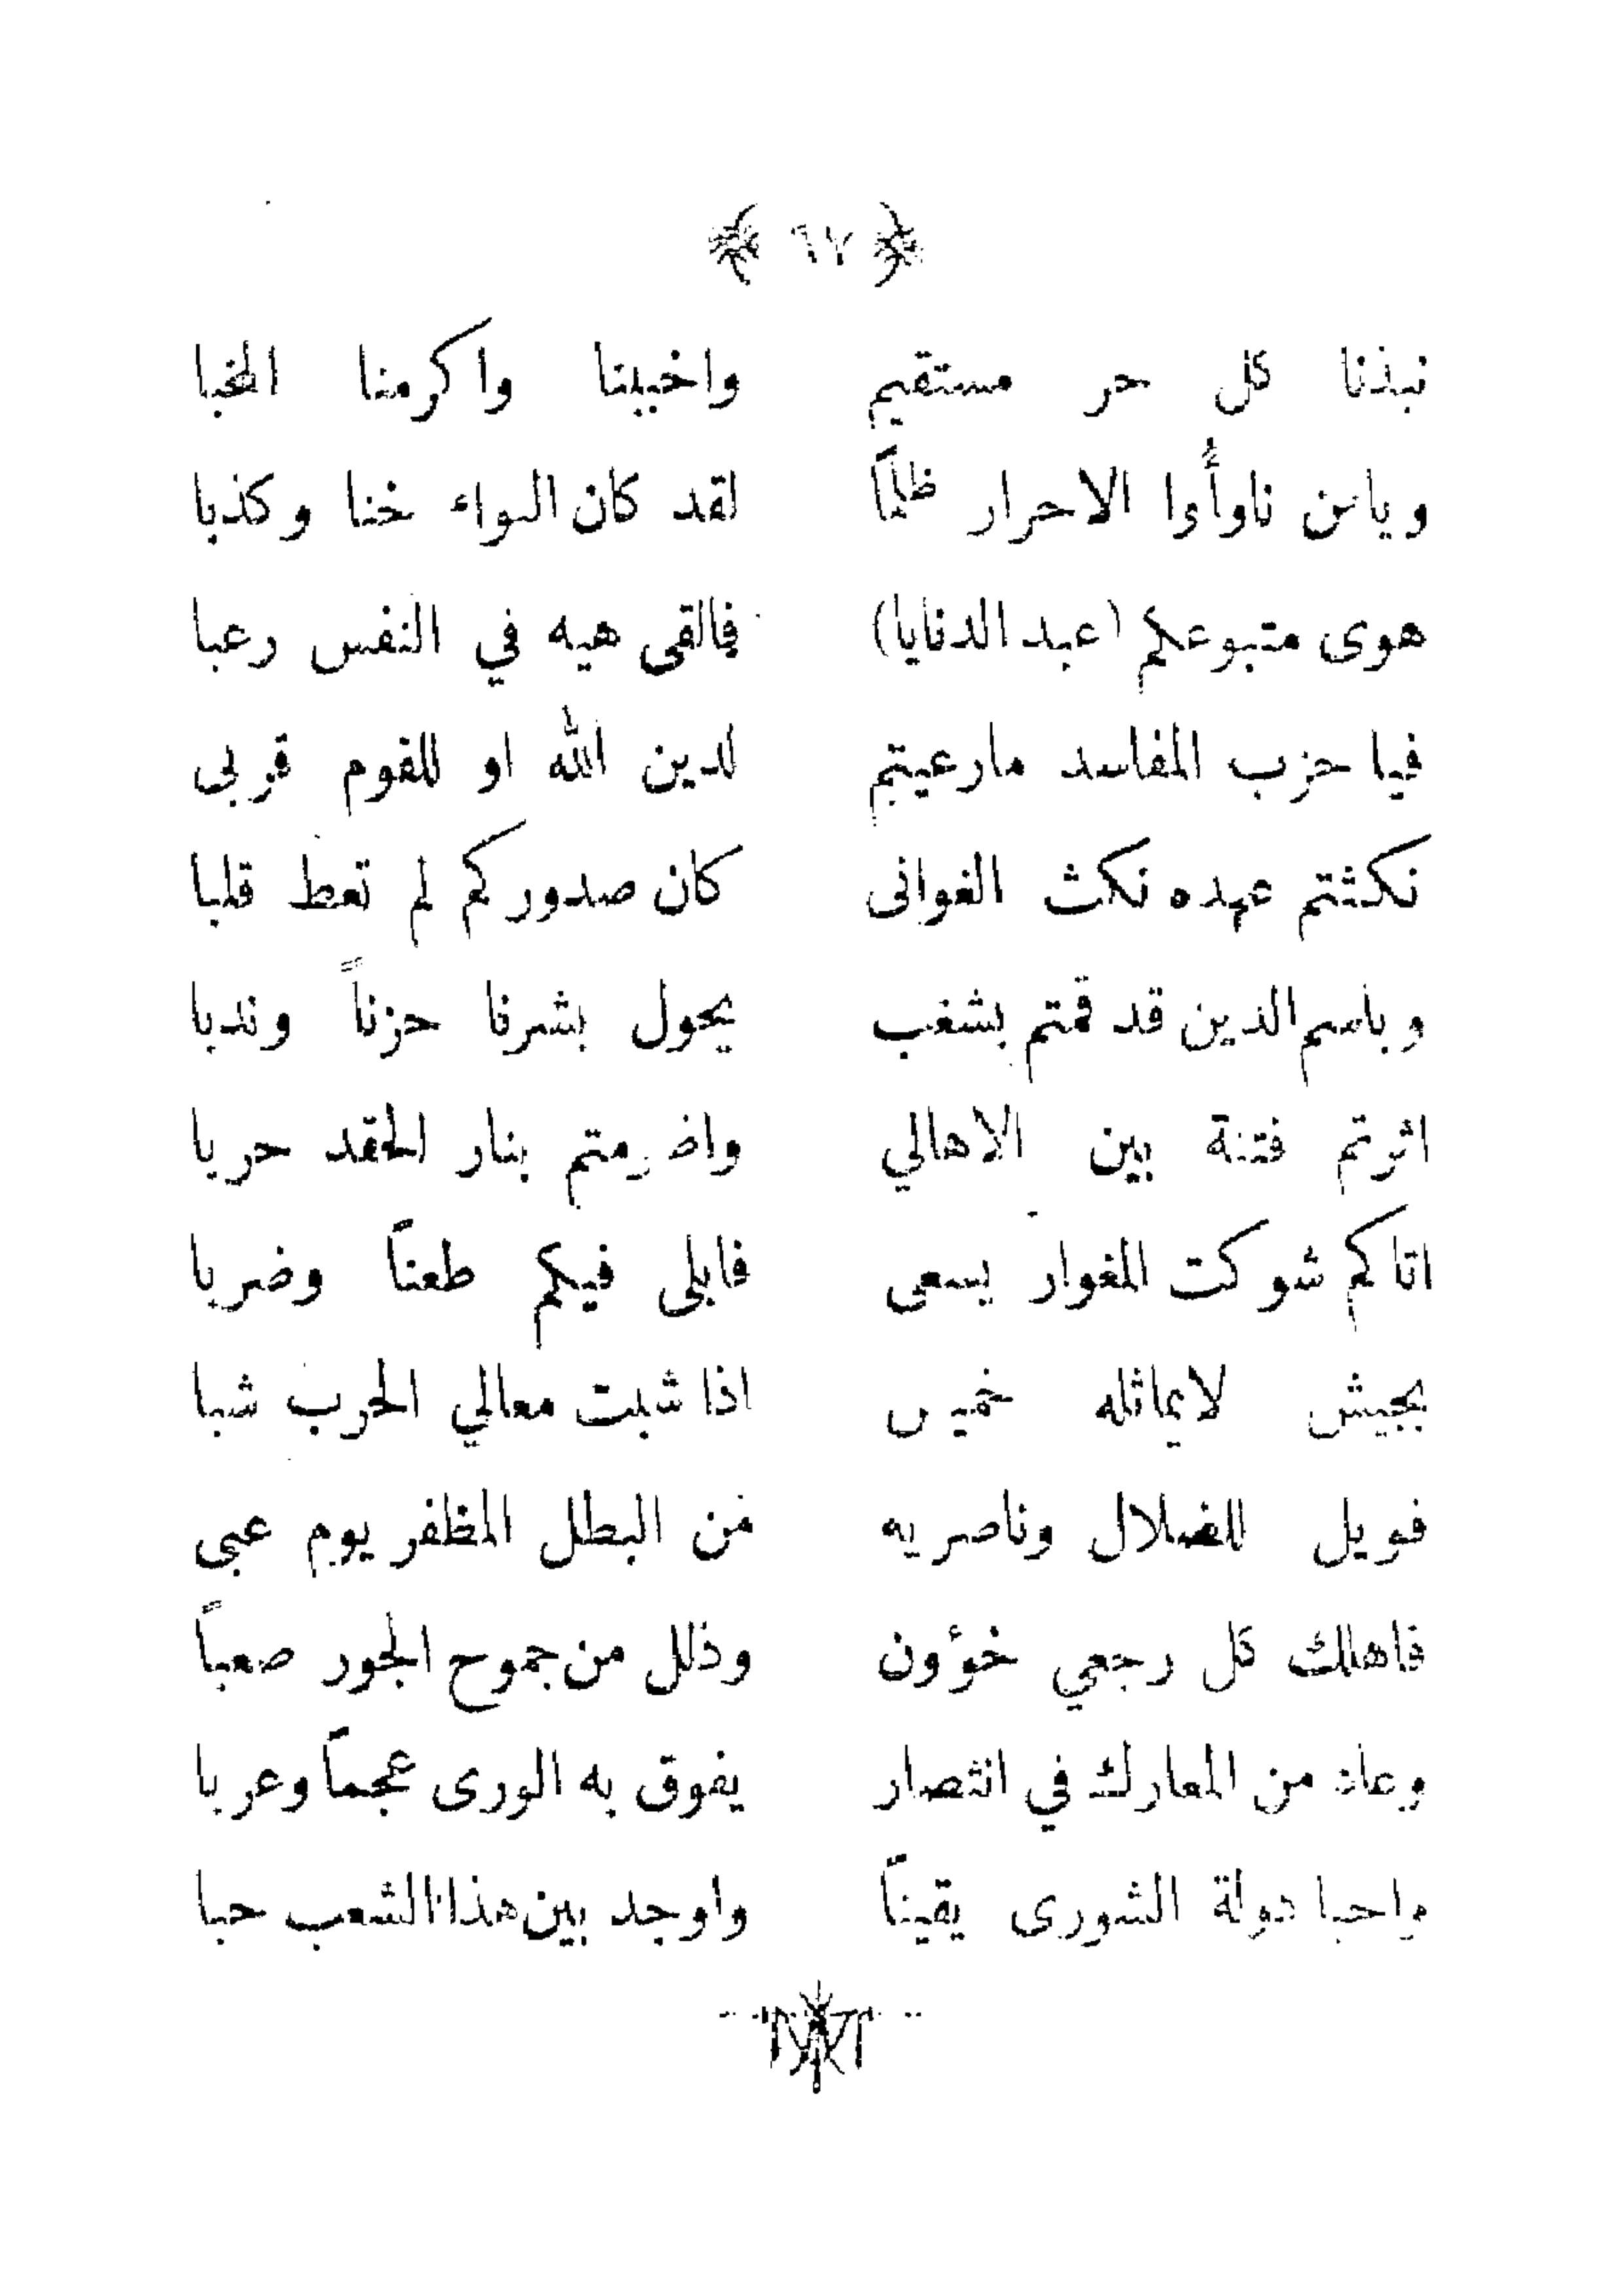 ٦٧
نبذنا كل حر مستقيم واخببنا واكرمنا المخبا
ويامن ناوأوا الاحرار ظلماً لقد كان الواء خنا وكذبا
هوى متبوعكم (عبد الدنايا) فالقى هيه في النفس رعبا
فيا حزب المفاسد مارعيتم لدين الله او للقوم قربى
نكثتم عهده نكث الغوانى كان صدوركم لم تعط قلبا
وباسم الدين قد قمتم بشغب يحول بشرنا حزناً وندبا
اثرتم فتنة بين الاهالي واضرمتم بنار الحقد حربا
اتاكم شوكت المغوار يسعى فابلى فيكم طعناً وضربا
بجيش لايماثله خميس اذا شبت معالي الحرب شبا
فويل للضلال وناصريه من البطل المظفر يوم عبى
فاهلك كل رجعي خؤون وذلل من جموح الجور صعباً
وعاد من المعارك في انتصار يفوق به الورى عجماً وعربا
واحيا دولة الشورى يقيناً واوجد بين هذا الشعب حبا